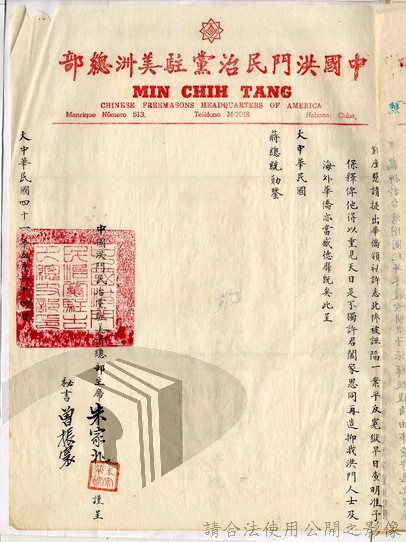 中國洪門民治黨駐美洲總部
MIN CHIH TANG
CHINESE FREEMASONS HEADQUARTERS OF AMERICA
Manrique Número 513. Teléfono M-7018 Habana, Cuba,
保釋俾他得以重見天日是不獨許君闔家恩同再造抑我洪門人士及
海外華僑亦當感德靡既矣此呈
大中華民國
蔣總統勛鑒
中國洪門民治黨駐美洲總部主席 朱家兆 謹呈
秘書 曾振寰
大中華民國四十一年
請合法使用公開之影像